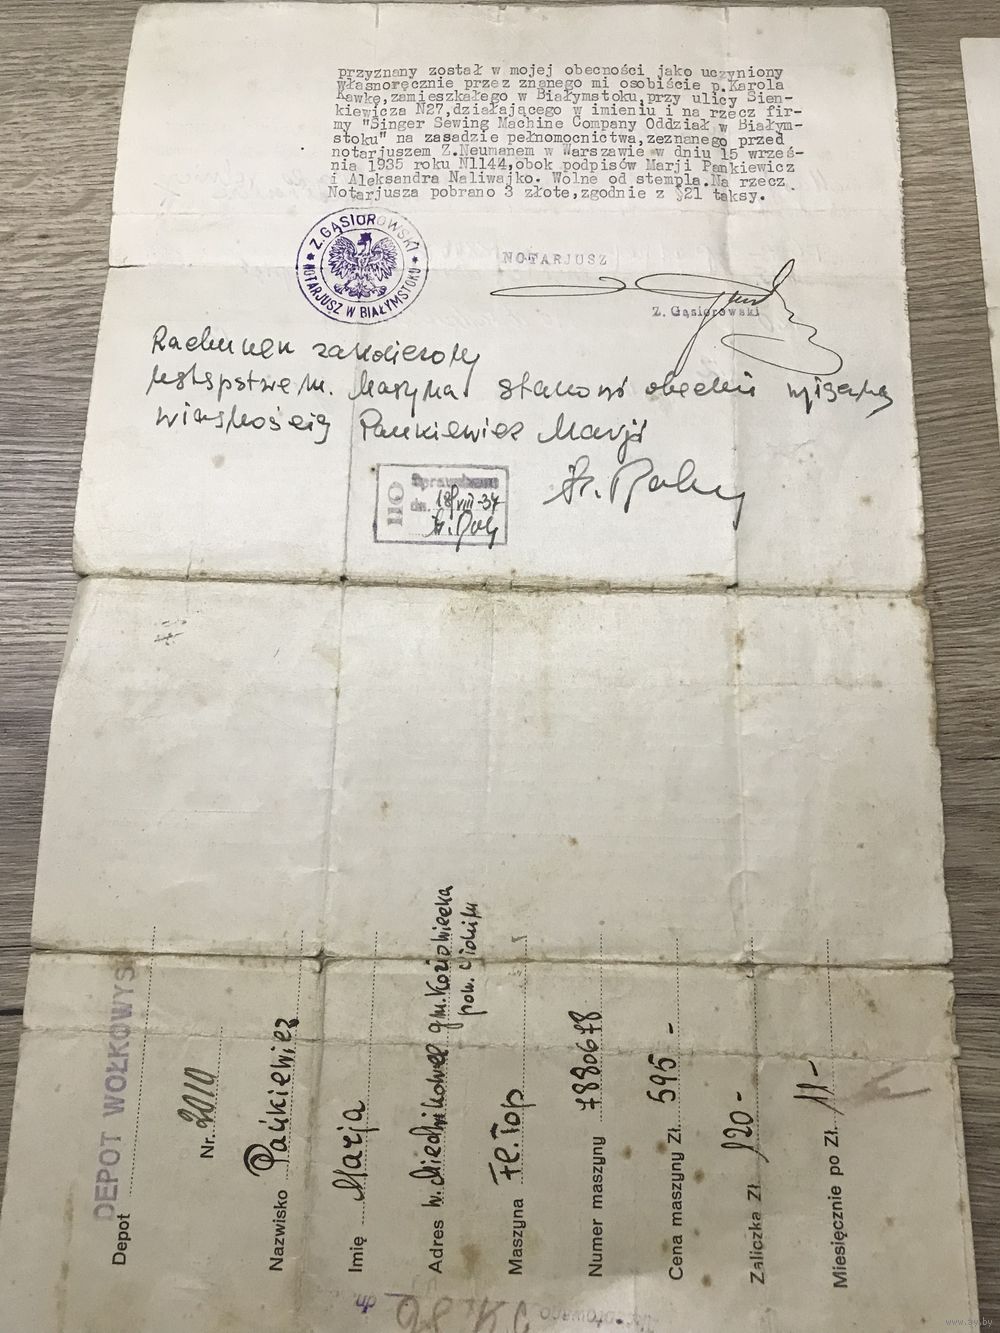 przyznany został w mojej obecności jako uczyniony
własnoręcznie przez znanego mi osobiście p.Karola
Kawkę,zamieszkałego w Białymstoku,przy ulicy Sien-
kiewicza N27,działającego w imieniu i na rzecz fir-
my "Singer Sewing Machine Company Oddział w Białym-
stoku" na zasadzie pełnomocnictwa,zeznanego przed
notarjuszem Z.Neumanem w Warszawie w dniu 15 wrześ-
nia 1935 roku N1144,obok podpisów Marji Pankiewicz
i Aleksandra Naliwajko. Wolne od stempla.Na rzecz
Notarjusza pobrano 3 złote,zgodnie z §21 taksy.
Z. GĄSIOROWSKI
NOTARJUSZ W BIAŁYMSTOKU
NOTARJUSZ
Z. Gąsiorowski
Rachunek
Maszyna stanowi obecnie
własnością Pankiewicz Marji
110
Sprawdzono
dn. 18/VIII-37
DEPOT WOŁKOWYS
Depot
Nr. 2010
Nazwisko Pańkiewicz
Imię Marja
Adres w. gm.
pow.
Maszyna
Numer maszyny 7880678
Cena maszyny Zł. 595-
Zaliczka Zł. 120-
Miesięcznie po Zł. 11-
www.ay.by